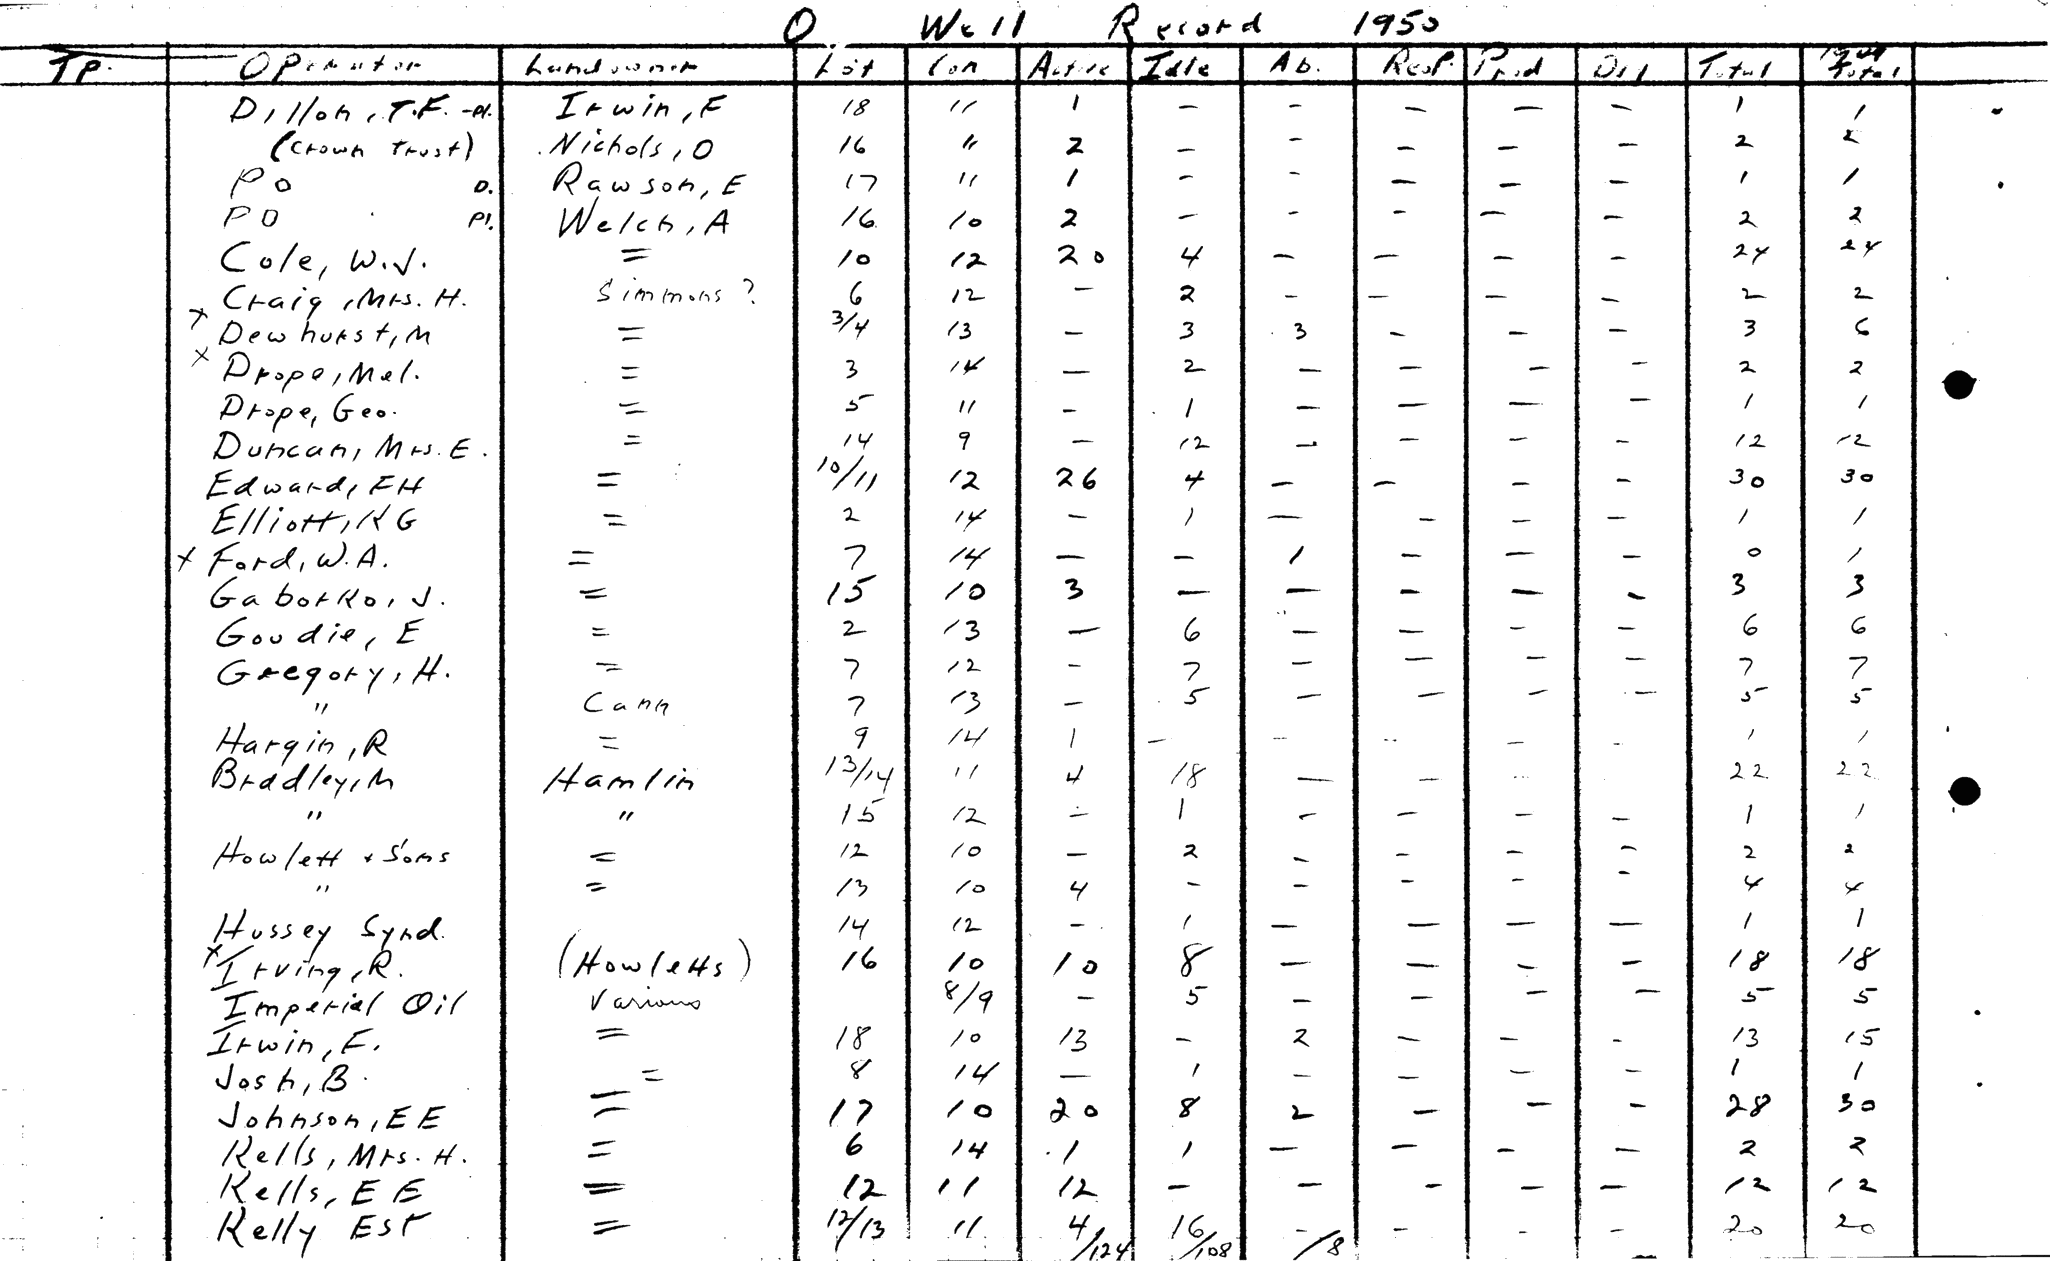 O. Well Record 1950
TP. Operator Landowner Lot Con Active Idle Ab. Prod Drl Total 1949 Total
Dillon, T.F. -Pl. Irwin, F 18 11 1 - - - - - 1 1
(Crown Trust) Nichols, O 16 " 2 - - - - - 2 2
PO D. Rawson, E 17 11 1 - - - - - 1 1
PO Pl. Welch, A 16 10 2 - - - - - 2 2
Cole, W.J. = 10 12 20 4 - - - - 24 24
Craig, Mrs. H. Simmons? 6 12 - 2 - - - - 2 2
x Dewhurst, M = 3/4 13 - 3 3 - - - 3 6
x Drope, Mel. = 3 14 - 2 - - - - 2 2
Drope, Geo. = 5 11 - 1 - - - - 1 1
Duncan, Mrs. E. = 14 9 - 12 - - - - 12 12
Edward, FH = 10/11 12 26 4 - - - - 30 30
Elliott, KG = 2 14 - 1 - - - - 1 1
x Ford, W.A. = 7 14 - - 1 - - - 0 1
Gaborko, J. = 15 10 3 - - - - - 3 3
Goudie, E = 2 13 - 6 - - - - 6 6
Gregory, H. = 7 12 - 7 - - - - 7 7
" Cann 7 13 - 5 - - - - 5 5
Hargin, R = 9 14 1 - - - - - 1 1
Bradley, M Hamlin 13/14 11 4 18 - - - 22 22
" " 15 12 - 1 - - - - 1 1
Howlett + Sons = 12 10 - 2 - - - - 2 2
" = 13 10 4 - - - - - 4 4
Hussey Synd. 14 12 - 1 - - - - 1 1
x Irving, R. (Howletts) 16 10 10 8 - - - - 18 18
Imperial Oil Various 8/9 - 5 - - - - 5 5
Irwin, F. = 18 10 13 - 2 - - - 13 15
Josh, B. = 8 14 - 1 - - - - 1 1
Johnson, EE = 17 10 20 8 2 - - - 28 30
Kells, Mrs. H. = 6 14 1 1 - - - - 2 2
Kells, EE = 12 11 12 - - - - - 12 12
Kelly Est = 12/13 11 4 16 - - - - 20 20
/124 /108 /8